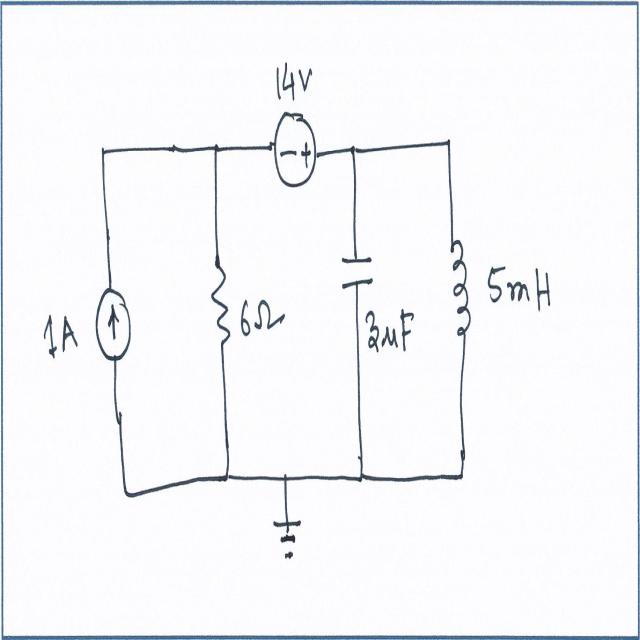 14V
- +
1A
6Ω
3μF
5mH